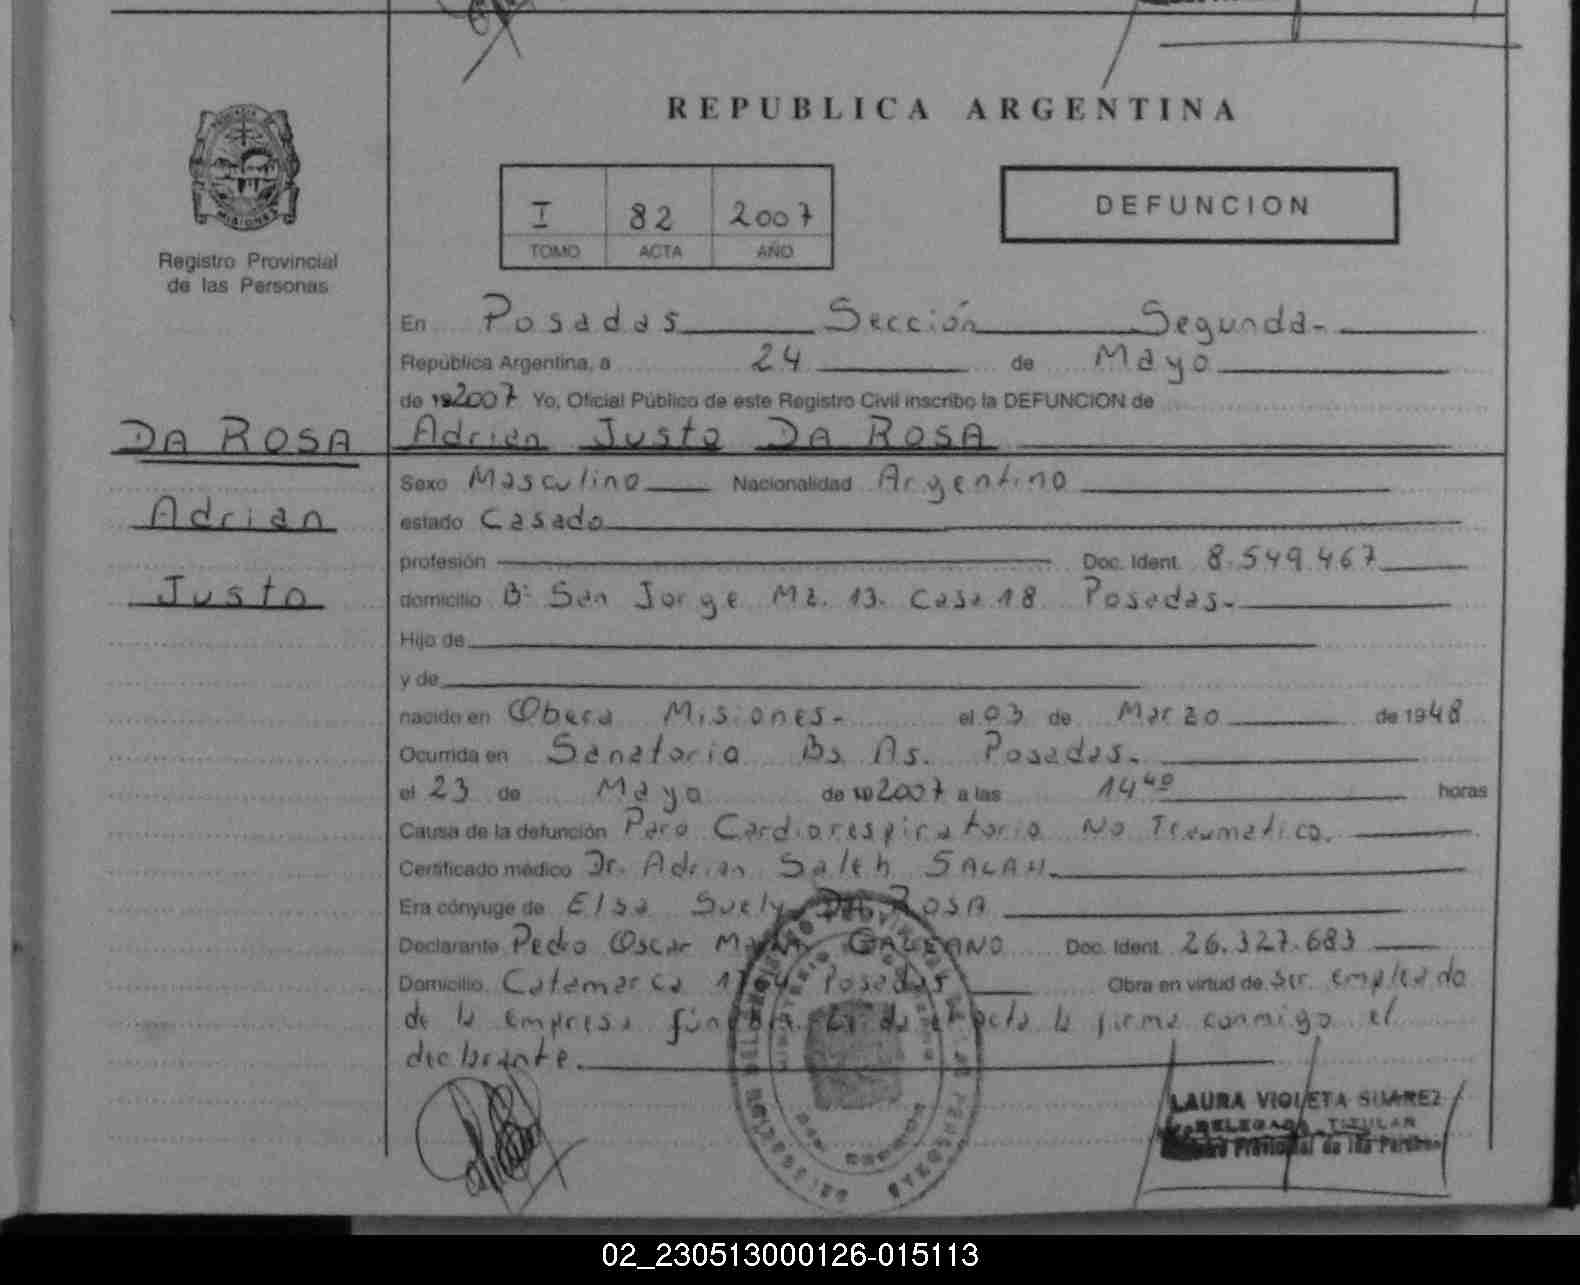 REPUBLICA ARGENTINA
MISIONES
Registro Provincial
de las Personas
I 82 2007
TOMO ACTA AÑO
DEFUNCION
En Posadas Sección Segunda-
República Argentina, a 24 de Mayo
de 192007 Yo, Oficial Público de este Registro Civil inscribo la DEFUNCION de
DA ROSA Adrian Justo DA ROSA
Sexo Masculino Nacionalidad Argentino
Adrian estado Casado
profesión Doc. Ident. 8.549.467
Justo domicilio B: San Jorge Mz. 13. Casa 18 Posadas-
Hijo de
y de
nacido en Obera Misiones- el 03 de Marzo de 1948
Ocurrida en Sanatorio Bs As. Posadas-
el 23 de Mayo de 192007 a las 14 40 horas
Causa de la defunción Paro Cardiorespiratorio No Traumatico.
Certificado médico Dr. Adrian Saleh SALAH.
Era cónyuge de Elsa Suely DA ROSA
Declarante Pedro Oscar GALEANO Doc. Ident. 26.327.683
Domicilio Catamarca Posadas Obra en virtud de ser empleado
de la empresa el acta la firma conmigo el
declarante.
LAURA VIOLETA SUAREZ
DELEGADA TITULAR
Provincial de las Personas
02_230513000126-015113